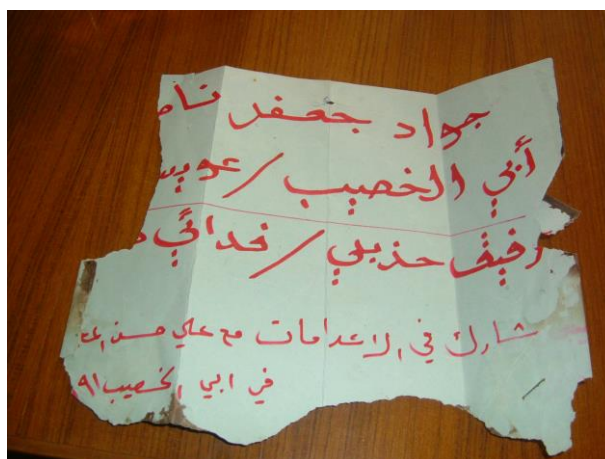 جواد جعفر
أبي الخصيب /
رفيق حزبي / فدائي
شارك في الاعدامات مع علي حسن
في ابي الخصيب ٩١